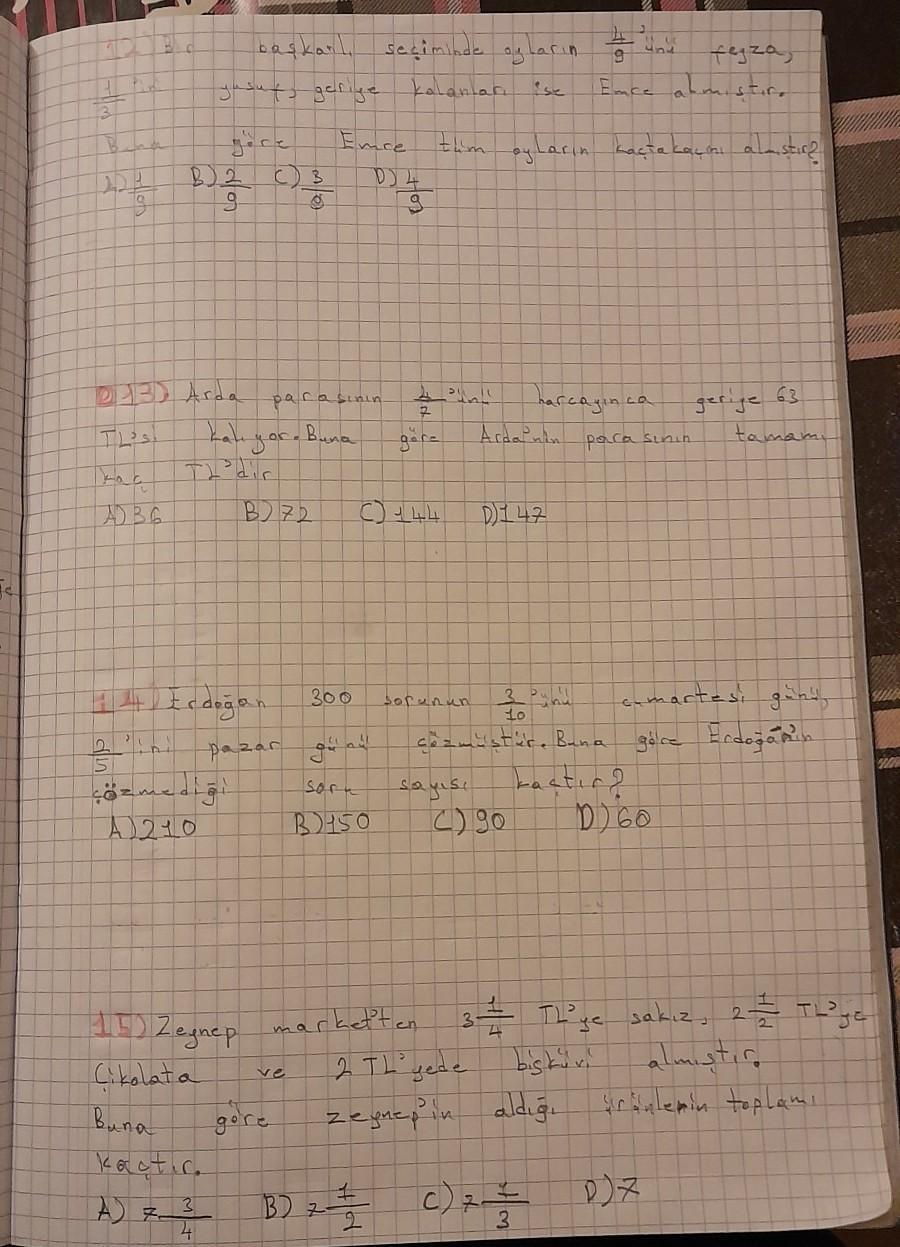 12) Bir başkanlı seçiminde oyların 4/9'ünü feyza,
1/3'ini yusuf, geriye kalanları ise Emre almıştır.
Buna göre Emre tüm oyların kaçtakaçını almıştır?
A) 1/9 B) 2/9 C) 3/9 D) 4/9
13) Arda parasının 4/7'ünü harcayınca geriye 63
TL'si kalıyor. Buna göre Arda'nın parasının tamamı
kaç TL'dir
A) 36 B) 72 C) 144 D) 147
14) Erdoğan 300 sorunun 3/10'ünü cumartesi günü,
2/5'ini pazar günü çözmüştür. Buna göre Erdoğan'ın
çözmediği soru sayısı kaçtır?
A) 210 B) 150 C) 90 D) 60
15) Zeynep market'ten 3 1/4 TL'ye sakız, 2 1/2 TL'ye
Çikolata ve 2 TL'yede bisküvi almıştır.
Buna göre zeynep'in aldığı ürünlerin toplamı
kaçtır.
A) 7 3/4 B) 7 1/2 C) 7 1/3 D) 7